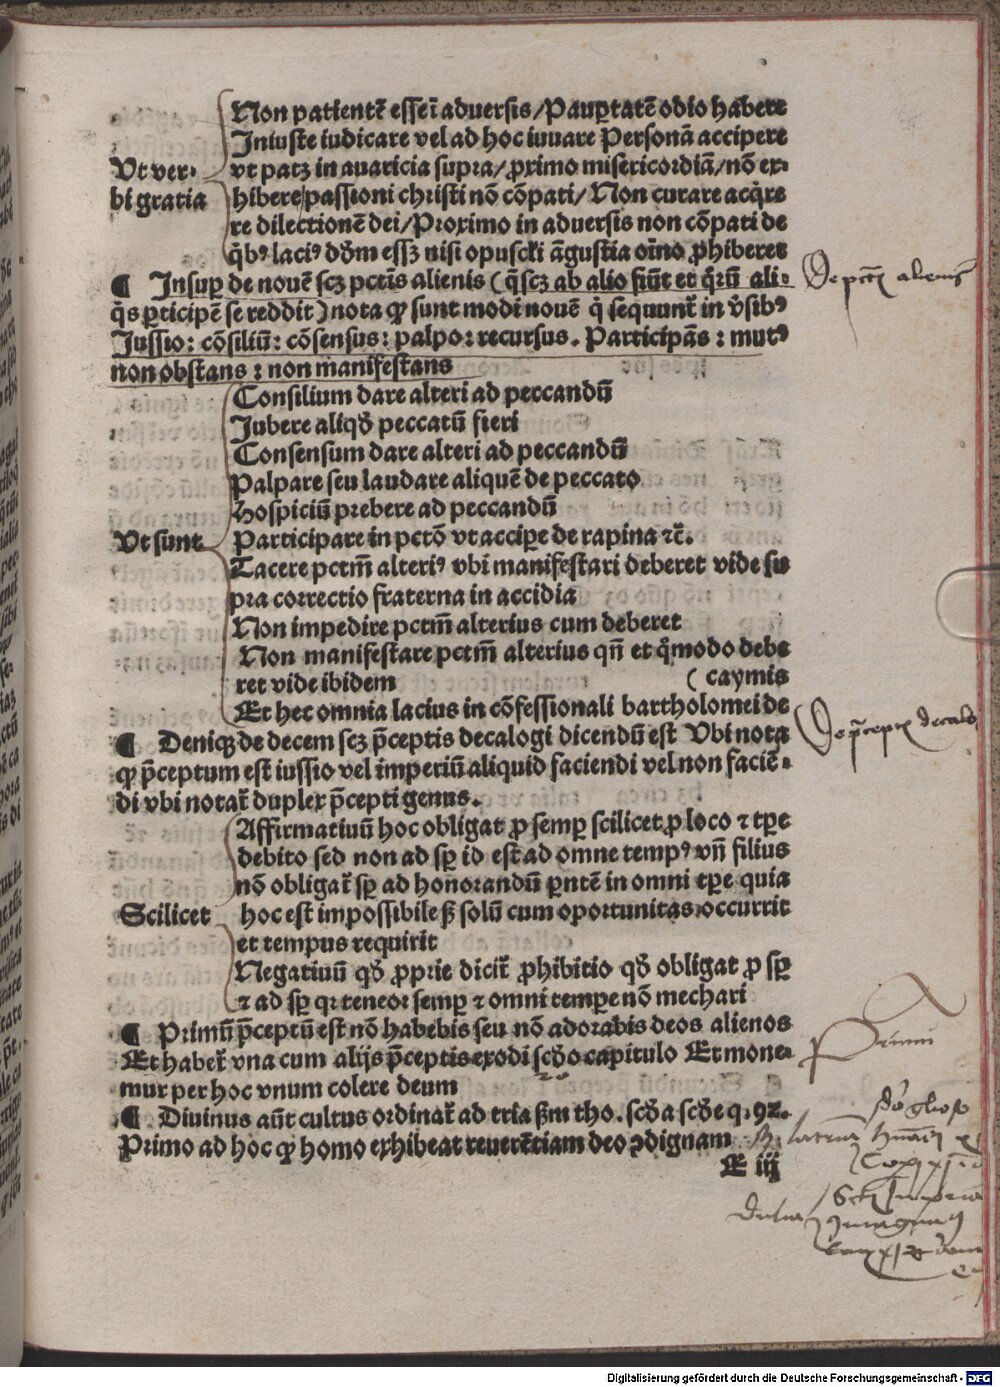 Non patientē esseī aduersis/Paup̲tatē odio habere
Iniuste iudicare vel ad hoc iuuare Personā accipere
Vt ver- vt patꝫ in auaricia supra/ꝓximo misericordiā/nō ex-
bi gratia hibere/passioni christi nō cōpati/Non curare acq̇re
re dilectionē dei/Proximo in aduersis non cōpati de
q̇bꝰ laciꝰ dd̄m essꝫ nisi opuscl̄i āgustia oīno ꝓhiberet
¶ Insuꝑ de nouē scꝫ pctīs alienis (q̄scꝫ ab alio fiūt et q̇rū ali-
De pctīs alienis
q̇s ꝑticipē se reddit) nota ꝙ sunt modi nouē q̇ sequunt᷑ in v̄sibꝰ
Iussio: cōsiliū: cōsensus: palpo: recursus. Participās: mutꝰ
non obstans: non manifestans
Consilium dare alteri ad peccandū
Iubere aliqd̄ peccatū fieri
Consensum dare alteri ad peccandū
Palpare seu laudare aliquē de peccato
Hospiciū prebere ad peccandū
Vt sunt Participare in pctō vt accipe de rapina ⁊c̄.
Tacere pctm̄ alteriꝰ vbi manifestari deberet vide su
pra correctio fraterna in accidia
Non impedire pctm̄ alterius cum deberet
Non manifestare pctm̄ alterius qn̄ et q̇modo debe
ret vide ibidem (caymis
Et hec omnia lacius in cōfessionali bartholomei de
¶ Deniqꝫ de decem scꝫ p̄ceptis decalogi dicendū est Vbi nota
De p̄ceptis decalo
ꝙ p̄ceptum est iussio vel imperiū aliquid faciendi vel non faciē-
di vbi notat᷑ duplex p̄cepti genus.
Affirmatiuū hoc obligat ꝓ semꝑ scilicet ꝓ loco ⁊ tꝑe
debito sed non ad sꝑ id est ad omne tempꝰ vn̄ filius
nō obligat᷑ sꝑ ad honorandū ꝑntē in omni tꝑe quia
Scilicet hoc est impossibile ꝫ solū cum oportunitas occurrit
et tempus requirit
Negatiuū qd̄ ꝓprie dicit᷑ ꝓhibitio qd̄ obligat ꝓ sꝑ
⁊ ad sꝑ qꝛ teneor semꝑ ⁊ omni tempe nō mechari
¶ Primū p̄ceptū est nō habebis seu nō adorabis deos alienos
Et habet᷑ vna cum alijs p̄ceptis exodi scd̄o capitulo Et mone-
Primum
mur per hoc vnum colere deum
¶ Diuinus aūt cultus ordinat᷑ ad tria ẜm tho. scd̄a scd̄e q. 92.
Primo ad hoc ꝙ homo exhibeat reuerētiam deo ↄdignam
E iij
Digitalisierung gefördert durch die Deutsche Forschungsgemeinschaft - DFG